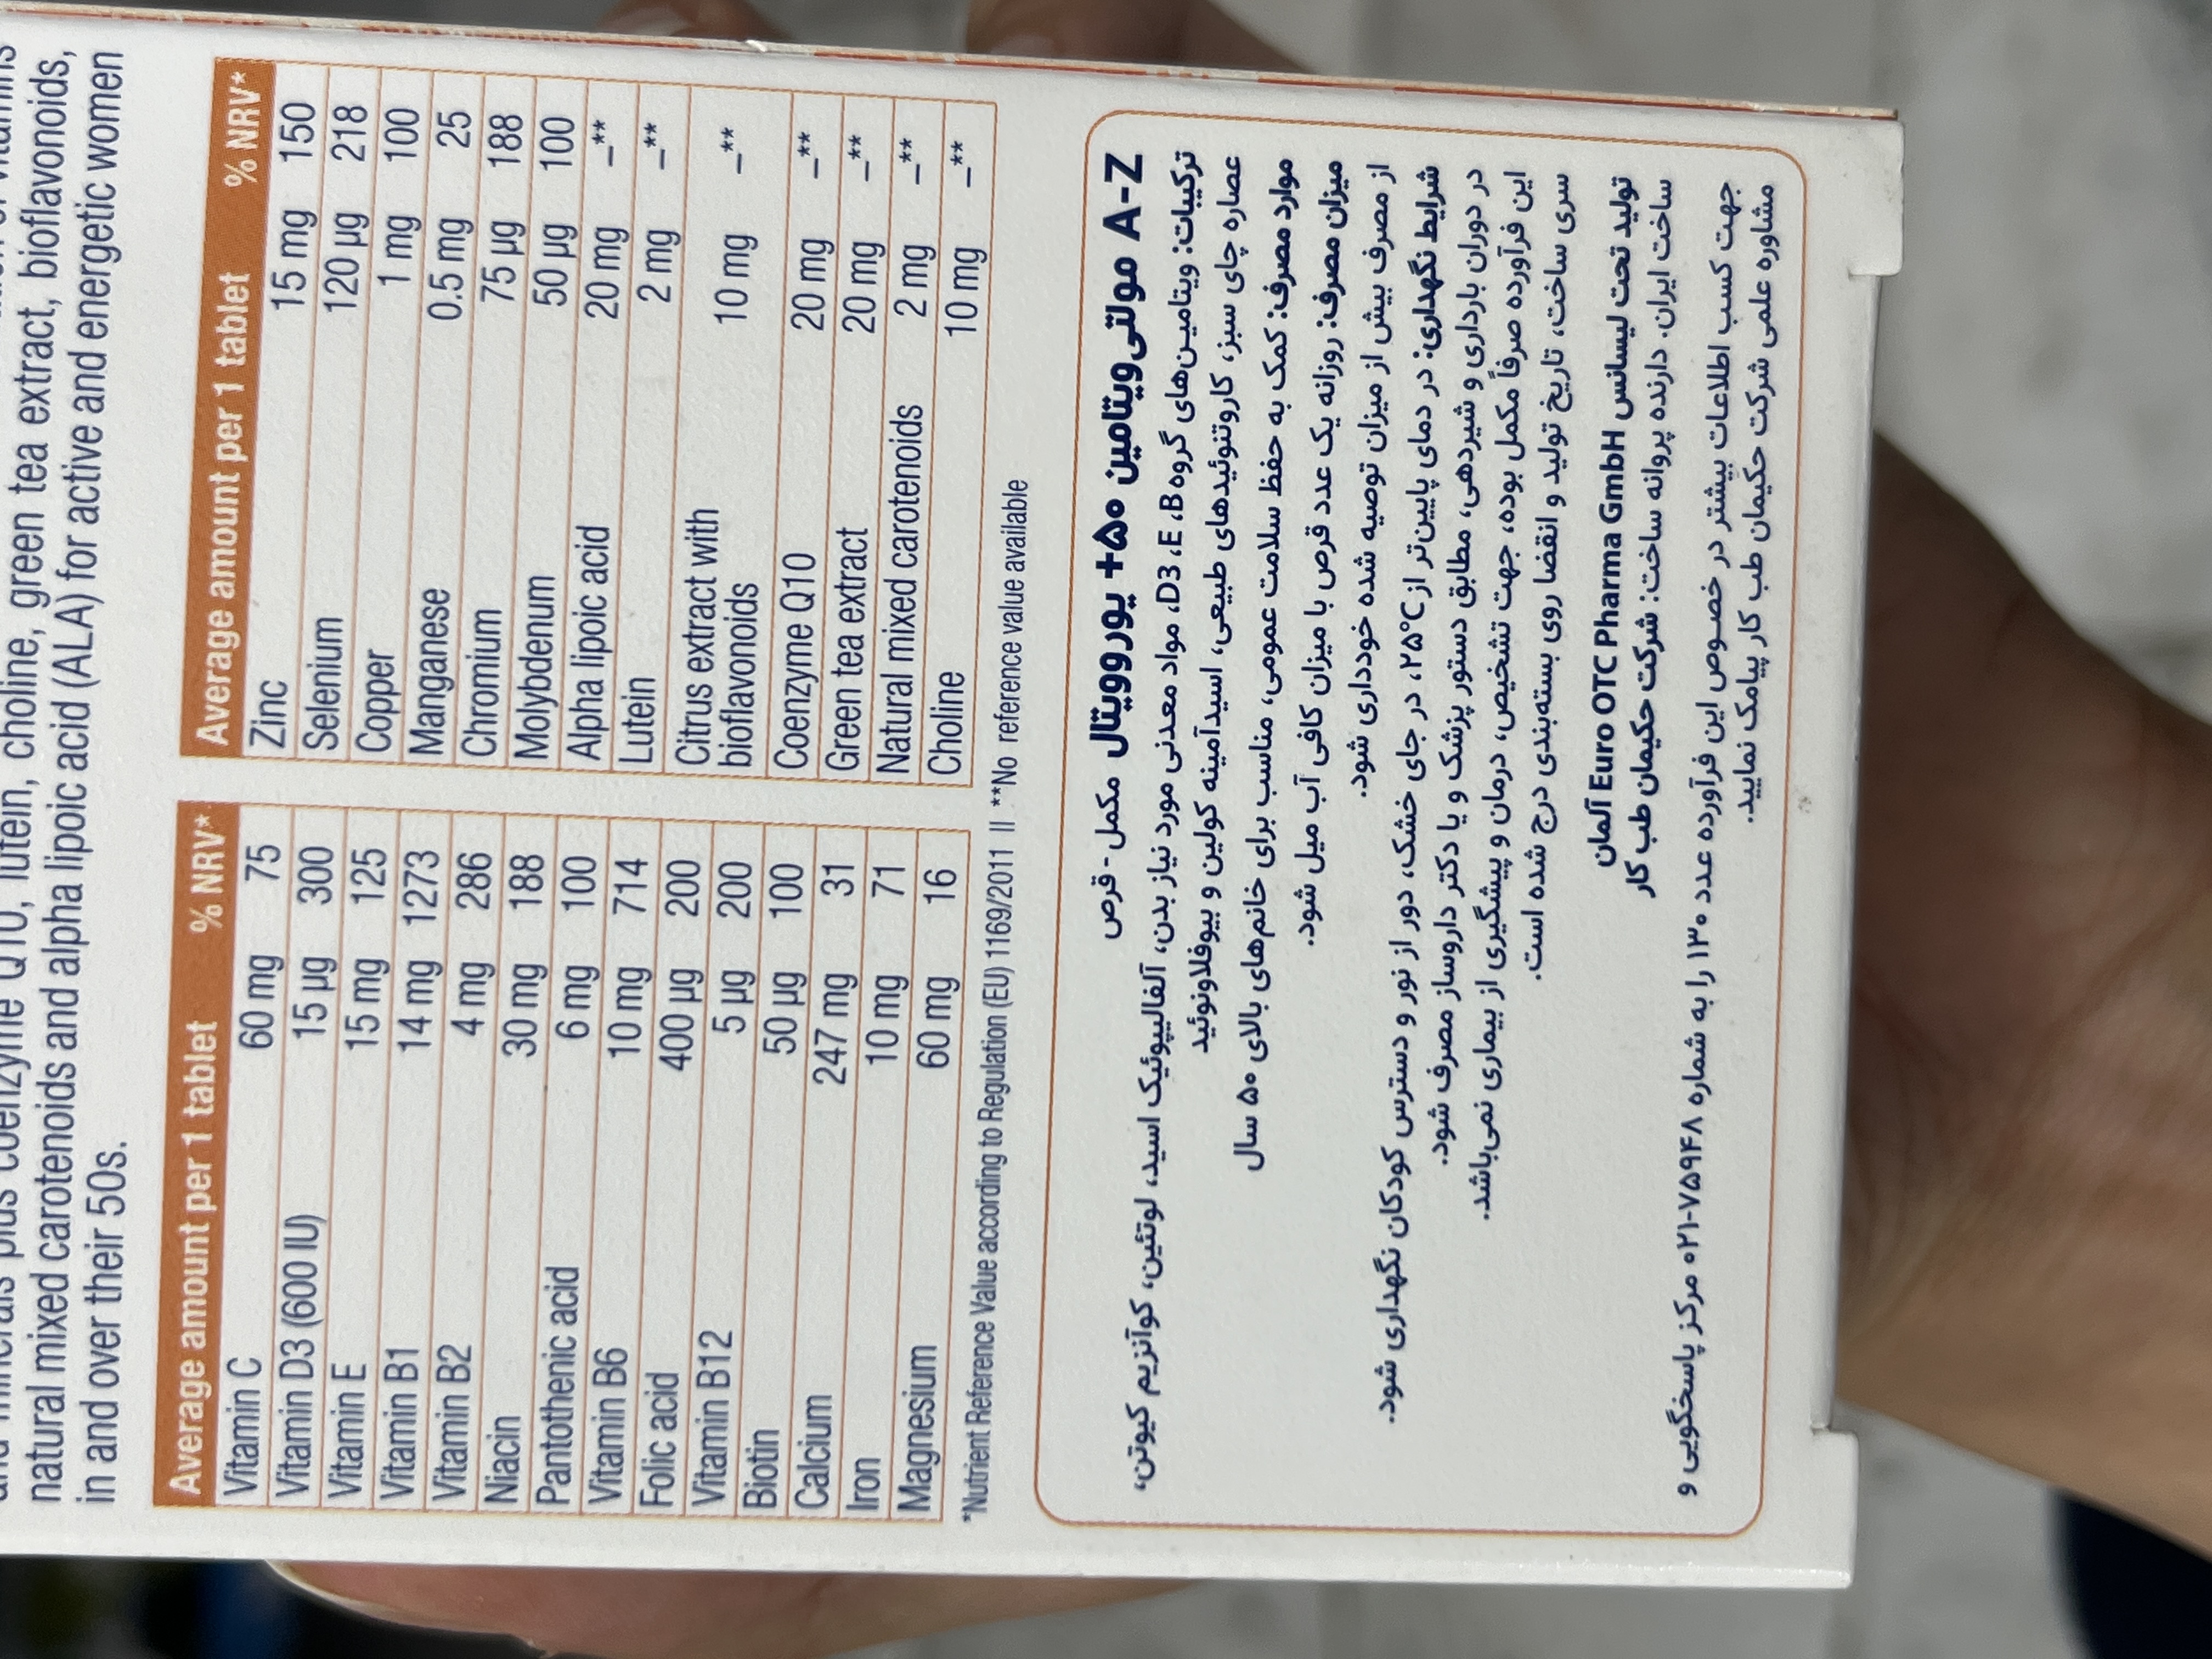 natural mixed carotenoids and alpha lipoic acid (ALA) for active and energetic women
in and over their 50s.
Average amount per 1 tablet % NRV*
Vitamin C 60 mg 75
Vitamin D3 (600 IU) 15 µg 300
Vitamin E 15 mg 125
Vitamin B1 14 mg 1273
Vitamin B2 4 mg 286
Niacin 30 mg 188
Pantothenic acid 6 mg 100
Vitamin B6 10 mg 714
Folic acid 400 µg 200
Vitamin B12 5 µg 200
Biotin 50 µg 100
Calcium 247 mg 31
Iron 10 mg 71
Magnesium 60 mg 16
Average amount per 1 tablet % NRV*
Zinc 15 mg 150
Selenium 120 µg 218
Copper 1 mg 100
Manganese 0.5 mg 25
Chromium 75 µg 188
Molybdenum 50 µg 100
Alpha lipoic acid 20 mg _**
Lutein 2 mg _**
Citrus extract with
bioflavonoids 10 mg _**
Coenzyme Q10 20 mg _**
Green tea extract 20 mg _**
Natural mixed carotenoids 2 mg _**
Choline 10 mg _**
*Nutrient Reference Value according to Regulation (EU) 1169/2011 || **No reference value available
A-Z مولتی‌ویتامین ۵۰+ یوروویتال مکمل - قرص
ترکیبات: ویتامین‌های گروه D3، E، B، مواد معدنی مورد نیاز بدن، آلفالیپوئیک اسید، لوتئین، کوآنزیم کیوتن،
عصاره چای سبز، کاروتنوئیدهای طبیعی، اسیدآمینه کولین و بیوفلاونوئید
موارد مصرف: کمک به حفظ سلامت عمومی، مناسب برای خانم‌های بالای ۵۰ سال
میزان مصرف: روزانه یک عدد قرص با میزان کافی آب میل شود.
از مصرف بیش از میزان توصیه شده خودداری شود.
شرایط نگهداری: در دمای پایین‌تر از ۲۵°C، در جای خشک، دور از نور و دسترس کودکان نگهداری شود.
در دوران بارداری و شیردهی، مطابق دستور پزشک و یا دکتر داروساز مصرف شود.
این فرآورده صرفاً مکمل بوده، جهت تشخیص، درمان و پیشگیری از بیماری نمی‌باشد.
سری ساخت، تاریخ تولید و انقضا روی بسته‌بندی درج شده است.
تولید تحت لیسانس Euro OTC Pharma GmbH آلمان
ساخت ایران. دارنده پروانه ساخت: شرکت حکیمان طب کار
جهت کسب اطلاعات بیشتر در خصوص این فرآورده عدد ۱۳۰ را به شماره ۰۲۱-۷۵۹۴۸ مرکز پاسخگویی و
مشاوره علمی شرکت حکیمان طب کار پیامک نمایید.